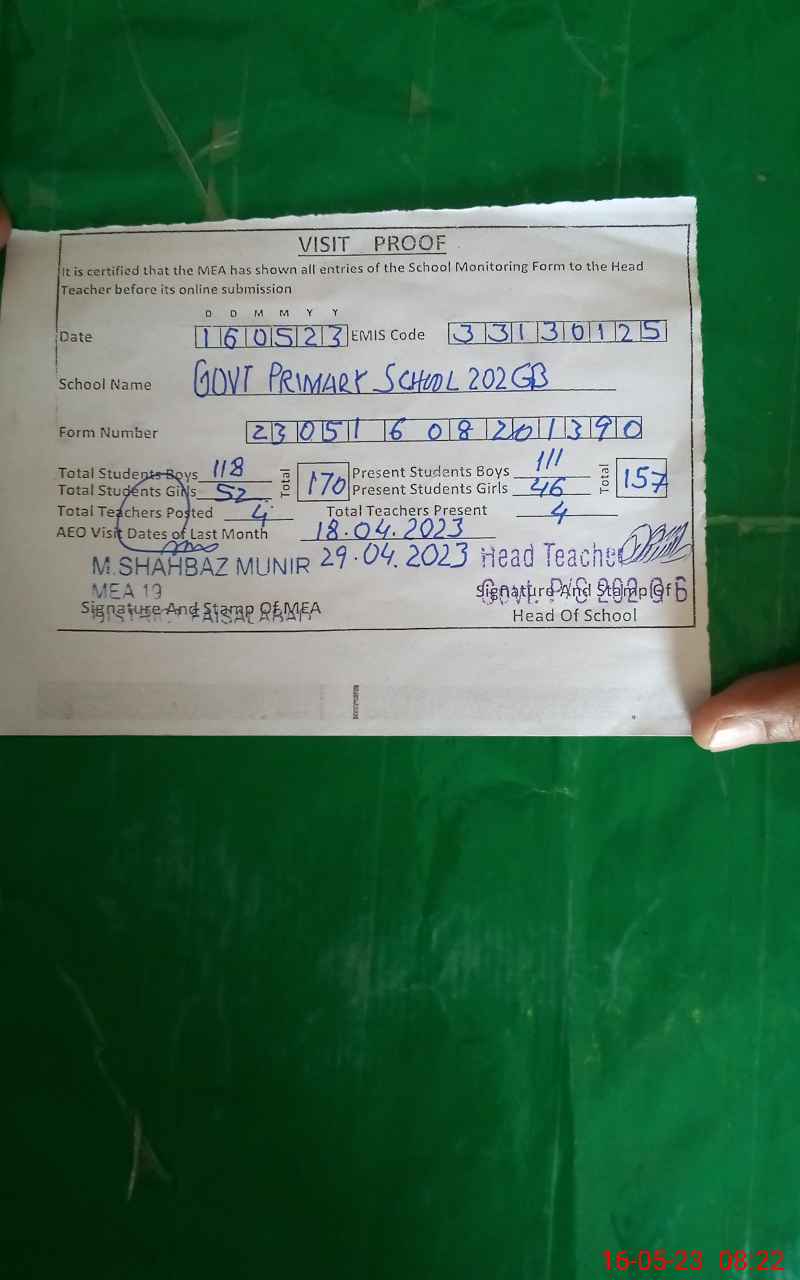 VISIT PROOF
It is certified that the MEA has shown all entries of the School Monitoring Form to the Head
Teacher before its online submission
D D M M Y Y
Date 160523 EMIS Code 33130125
School Name GOVT PRIMARY SCHOOL 202GB
Form Number 23051608201390
Total Students Boys 118 Total 170 Present Students Boys 111 Total 157
Total Students Girls 52 Present Students Girls 46
Total Teachers Posted 4 Total Teachers Present 4
AEO Visit Dates of Last Month 18.04.2023
29.04.2023
M.SHAHBAZ MUNIR Head Teacher
MEA 19 Govt. P/S 202 G B
Signature And Stamp Of MEA Signature And Stamp Of
FAISALABAD Head Of School
16-05-23 08:22